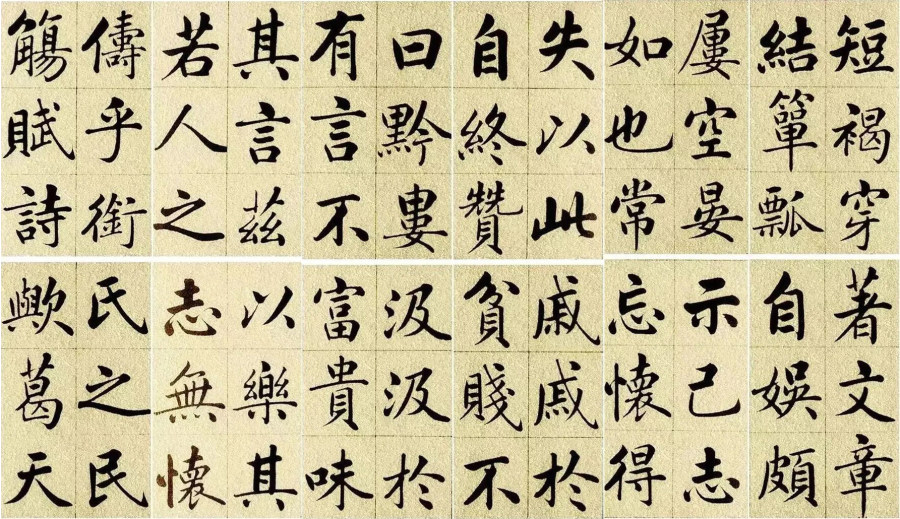 短褐穿
結簞瓢
屢空晏
如也常
著文章
自娛頗
示己志
忘懷得
失以此
自終贊
曰黔婁
有言不
戚戚於
貧賤不
汲汲於
富貴味
其言茲
若人之
儔乎銜
觴賦詩
以樂其
志無懷
氏之民
歟葛天